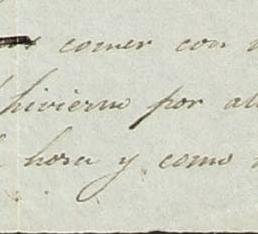 comer con
hivierno por al
hora y como